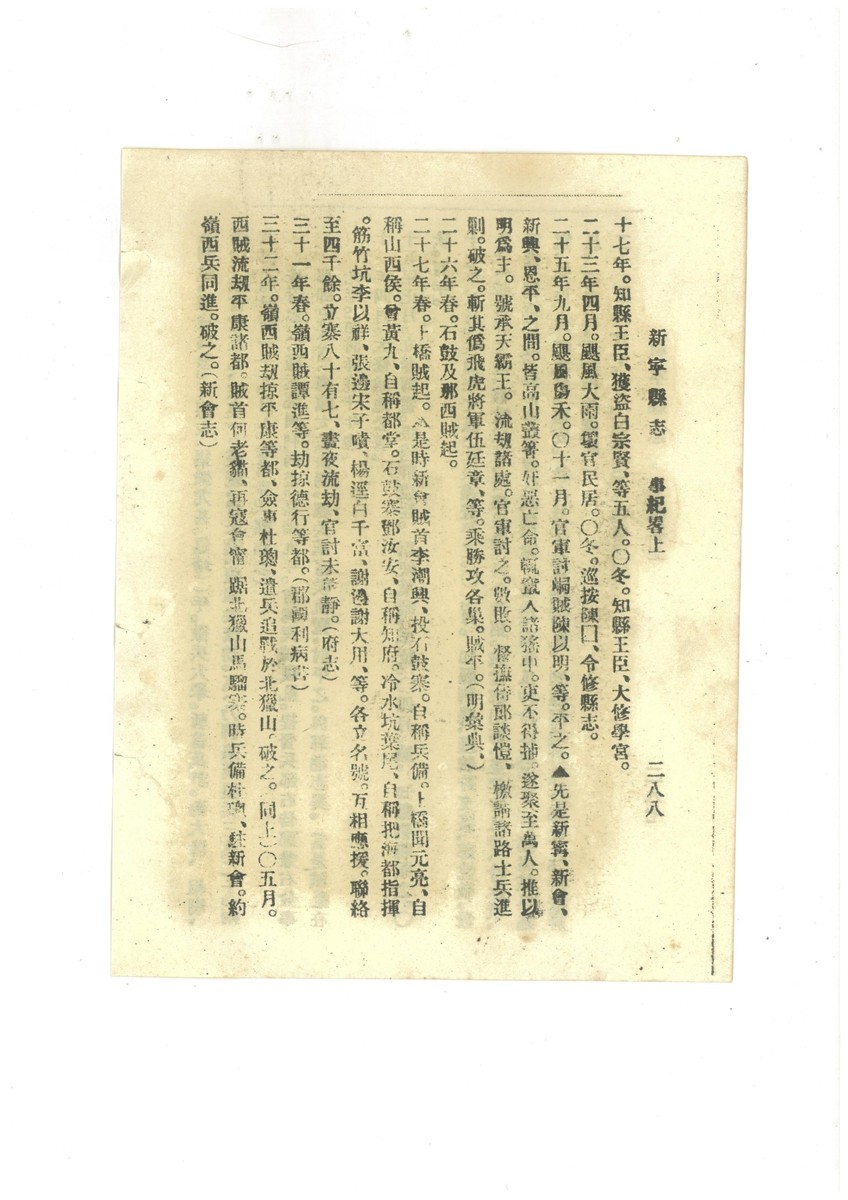 新寧縣志 事紀畧上 二八八
十七年。知縣王臣、獲盜白宗賢、等五人。〇冬。知縣王臣、大修學宮。
二十三年四月。颶風大雨。壞官民居。〇冬。巡按陳囗、令修縣志。
二十五年九月。颶風傷禾。〇十一月。官軍討峒賊陳以明、等。平之。▲先是新寧、新會、
新興、恩平、之間。皆高山叢箐。奸惡亡命。輒竄入諸猺中。吏不得捕。遂聚至萬人。推以
明爲主。號承天霸王。流刼諸處。官軍討之。數敗。督撫侍郞談愷、檄諸路士兵進
剿。破之。斬其僞飛虎將軍伍廷章、等。乘勝攻各巢。賊平。（明彙典、）
二十六年春。石鼓及那西賊起。
二十七年春。上橋賊起。▲是時新會賊首李潮興、投石鼓寨。自稱兵備。上橋聞元亮、自
稱山西侯。曾黃九、自稱都堂。石鼓寨鄧汝安、自稱知府。冷水坑葉尾、自稱把海都指揮
。筋竹坑李以祥、張邊宋子嘖、楊逕白千富、謝邊謝大用、等。各立名號。互相應援。聯絡
至四千餘。立寨八十有七、晝夜流劫、官討未靜。（府志）
三十一年春。嶺西賊譚進等。劫掠德行等都。（郡國利病書）
三十二年。嶺西賊刼掠平康等都、僉事杜璁、遣兵追戰於北獵山。破之。同上〇五月。
西賊流刼平康諸都。賊首何老貓、再寇會甯 踞北獵山馬騮寨。時兵備杜璁、駐新會。約
嶺西兵同進。破之。（新會志）